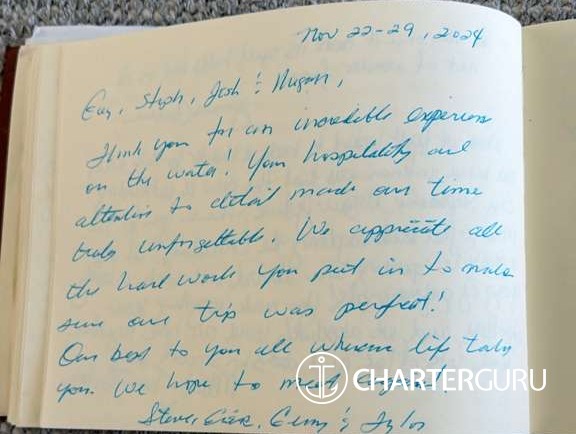 Nov 22-29, 2024
Steph, Josh & Megan,
Thank you for an incredible experience
on the water! Your hospitality and
attention to detail made our time
truly unforgettable. We appreciate all
the hard work you put in to make
sure our trip was perfect!
Our best to you all where life takes
you. We hope to meet again!
CHARTERGURU
Steve, &